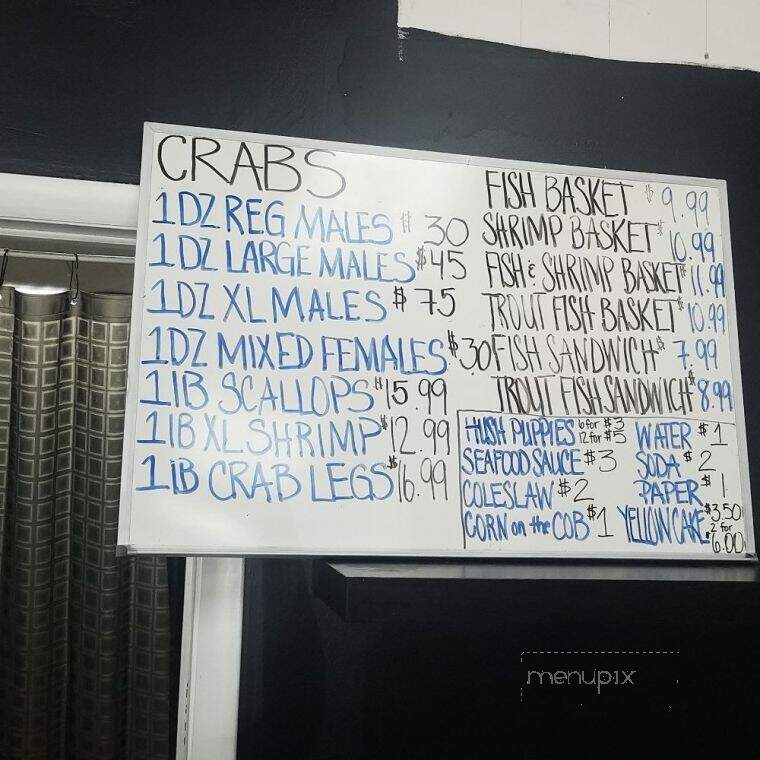 CRABS
1DZ REG MALES $30
1DZ LARGE MALES $45
1DZ XL MALES $75
1DZ MIXED FEMALES $30
1lB SCALLOPS $15.99
1lB XL SHRIMP $12.99
1lB CRAB LEGS $16.99
FISH BASKET $9.99
SHRIMP BASKET $10.99
FISH & SHRIMP BASKET $11.99
TROUT FISH BASKET $10.99
FISH SANDWICH $7.99
TROUT FISH SANDWICH $8.99
HUSH PUPPIES 6 for $3
12 for $5
SEAFOOD SAUCE $3
COLESLAW $2
CORN on the COB $1
WATER $1
SODA $2
PAPER $1
YELLOW CAKE $3.50
2 for
$6.00
menupix